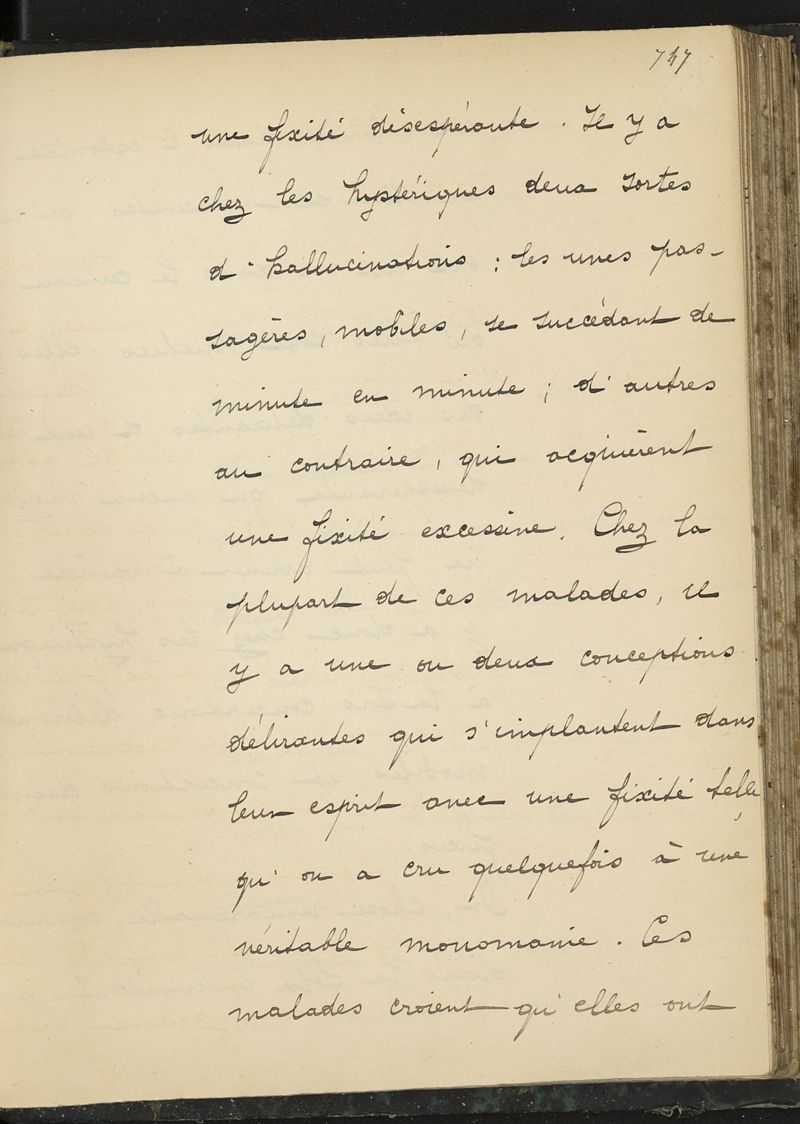 747
une fixité désespérante. Il y a
chez les hystériques deux sortes
d'hallucinations : les unes pas-
sagères, mobiles, se succédant de
minute en minute ; d'autres
au contraire, qui acquièrent
une fixité excessive. Chez la
plupart de ces malades, il
y a une ou deux conceptions
délirantes qui s'implantent dans
leur esprit avec une fixité telle
qu'on a cru quelquefois à une
véritable monomanie. Ces
malades croient qu'elles ont